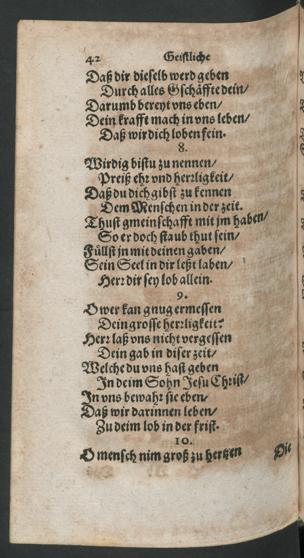 42 Geistliche
Daß dir dieselb werd geben
Durch alles Gschäffte dein/
Darumb bereyt vns eben/
Dein krafft mach in vns leben/
Daß wir dich loben fein.
8.
Wirdig bistu zu nennen/
Preiß ehr vnd herrligkeit/
Daß du dich gibst zu kennen
Dem Menschen in der zeit.
Thust gmeinschafft mit jm haben/
So er doch staub thut sein/
Füllst jn mit deinen gaben/
Sein Seel in dir leßt laben/
Herr dir sey lob allein.
9.
O wer kan gnug ermessen
Dein grosse herrligkeit?
Herr laß vns nicht vergessen
Dein gab in diser zeit/
Welche du vns hast geben
In deim Sohn Jesu Christ/
In vns bewahr sie eben/
Daß wir darinnen leben/
Zu deim lob in der frist.
10.
O mensch nim groß zu hertzen
Die